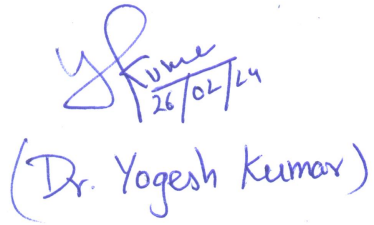 Y Kumar
26/02/24
(Dr. Yogesh Kumar)